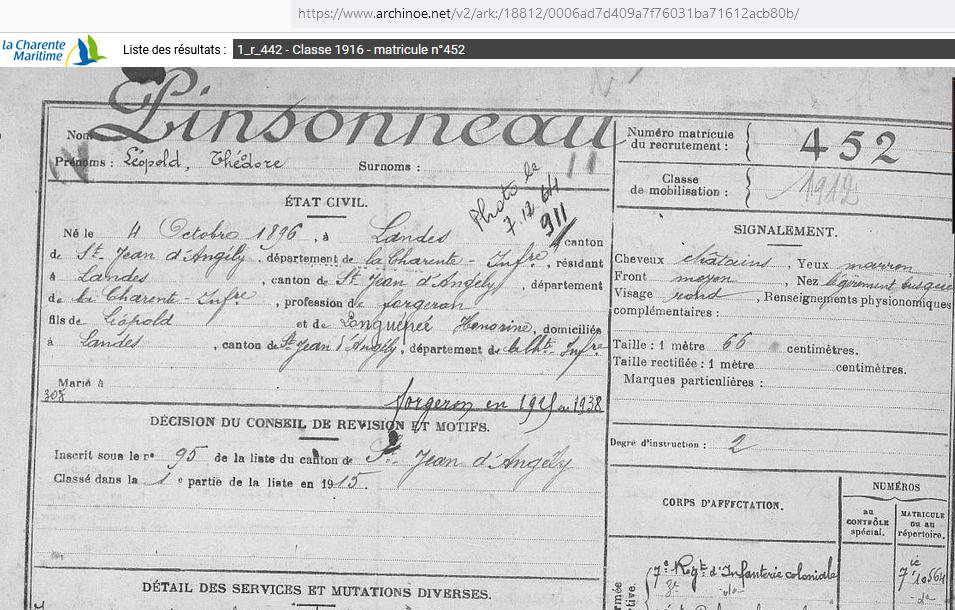 https://www.archinoe.net/v2/ark:/18812/0006ad7d409a7f76031ba71612acb80b/
la Charente Maritime
Liste des résultats : 1_r_442 - Classe 1916 - matricule n°452
Nom Pinsonneau
Prénoms : Léopold, Thédore Surnoms : 11
Numéro matricule du recrutement : 452
Classe de mobilisation : 1912
Photo le 7.12.64
911
ÉTAT CIVIL.
Né le 4 Octobre 1896, à Landes canton
de St. Jean d'Angély, département de la Charente-Infre, résidant
à Landes, canton de St Jean d'Angély, département
de la Charente-Infre, profession de forgeron
fils de Léopold et de Honorine, domiciliés
à Landes, canton de St Jean d'Angély, département de la Cht. Infre
Marié à
308
forgeron en 1915 en 1938
SIGNALEMENT.
Cheveux chatains, Yeux marron,
Front moyen, Nez légèrement busqué
Visage rond, Renseignements physionomiques
complémentaires :
Taille : 1 mètre 66 centimètres.
Taille rectifiée : 1 mètre centimètres.
Marques particulières :
Degré d'instruction : 2
DÉCISION DU CONSEIL DE REVISION ET MOTIFS.
Inscrit sous le n° 95 de la liste du canton de St. Jean d'Angély
Classé dans la 1 e partie de la liste en 1915.
DÉTAIL DES SERVICES ET MUTATIONS DIVERSES.
CORPS D'AFFECTATION.
NUMÉROS
au CONTRÔLE spécial.
MATRICULE ou au répertoire.
7e Regt d'Infanterie coloniale
7 ie 10564